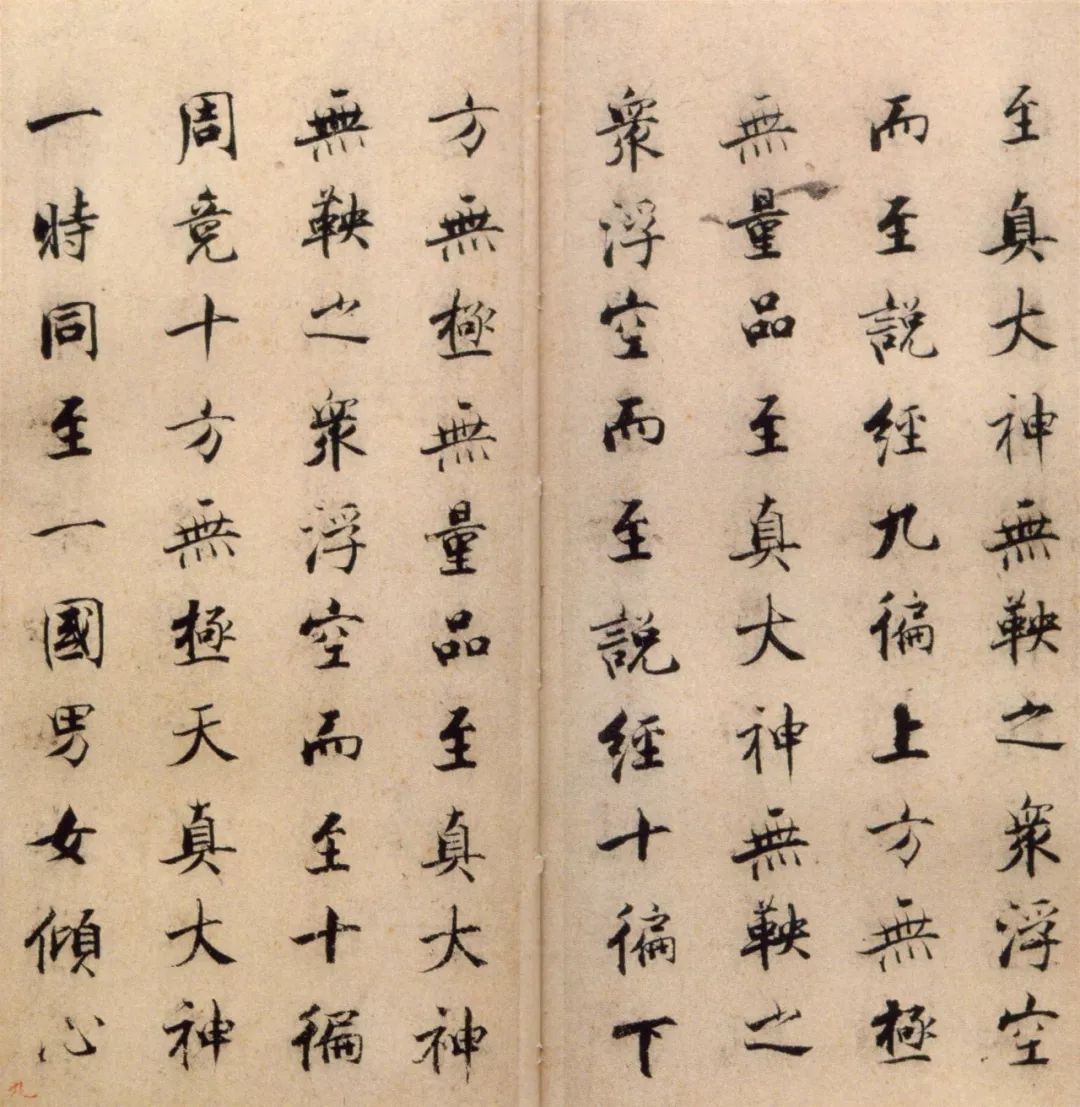 至真大神無鞅之衆浮空
而至説經九徧上方無極
無量品至真大神無鞅之
衆浮空而至説經十徧下
方無極無量品至真大神
無鞅之衆浮空而至十徧
周竟十方無極天真大神
一時同至一國男女傾心